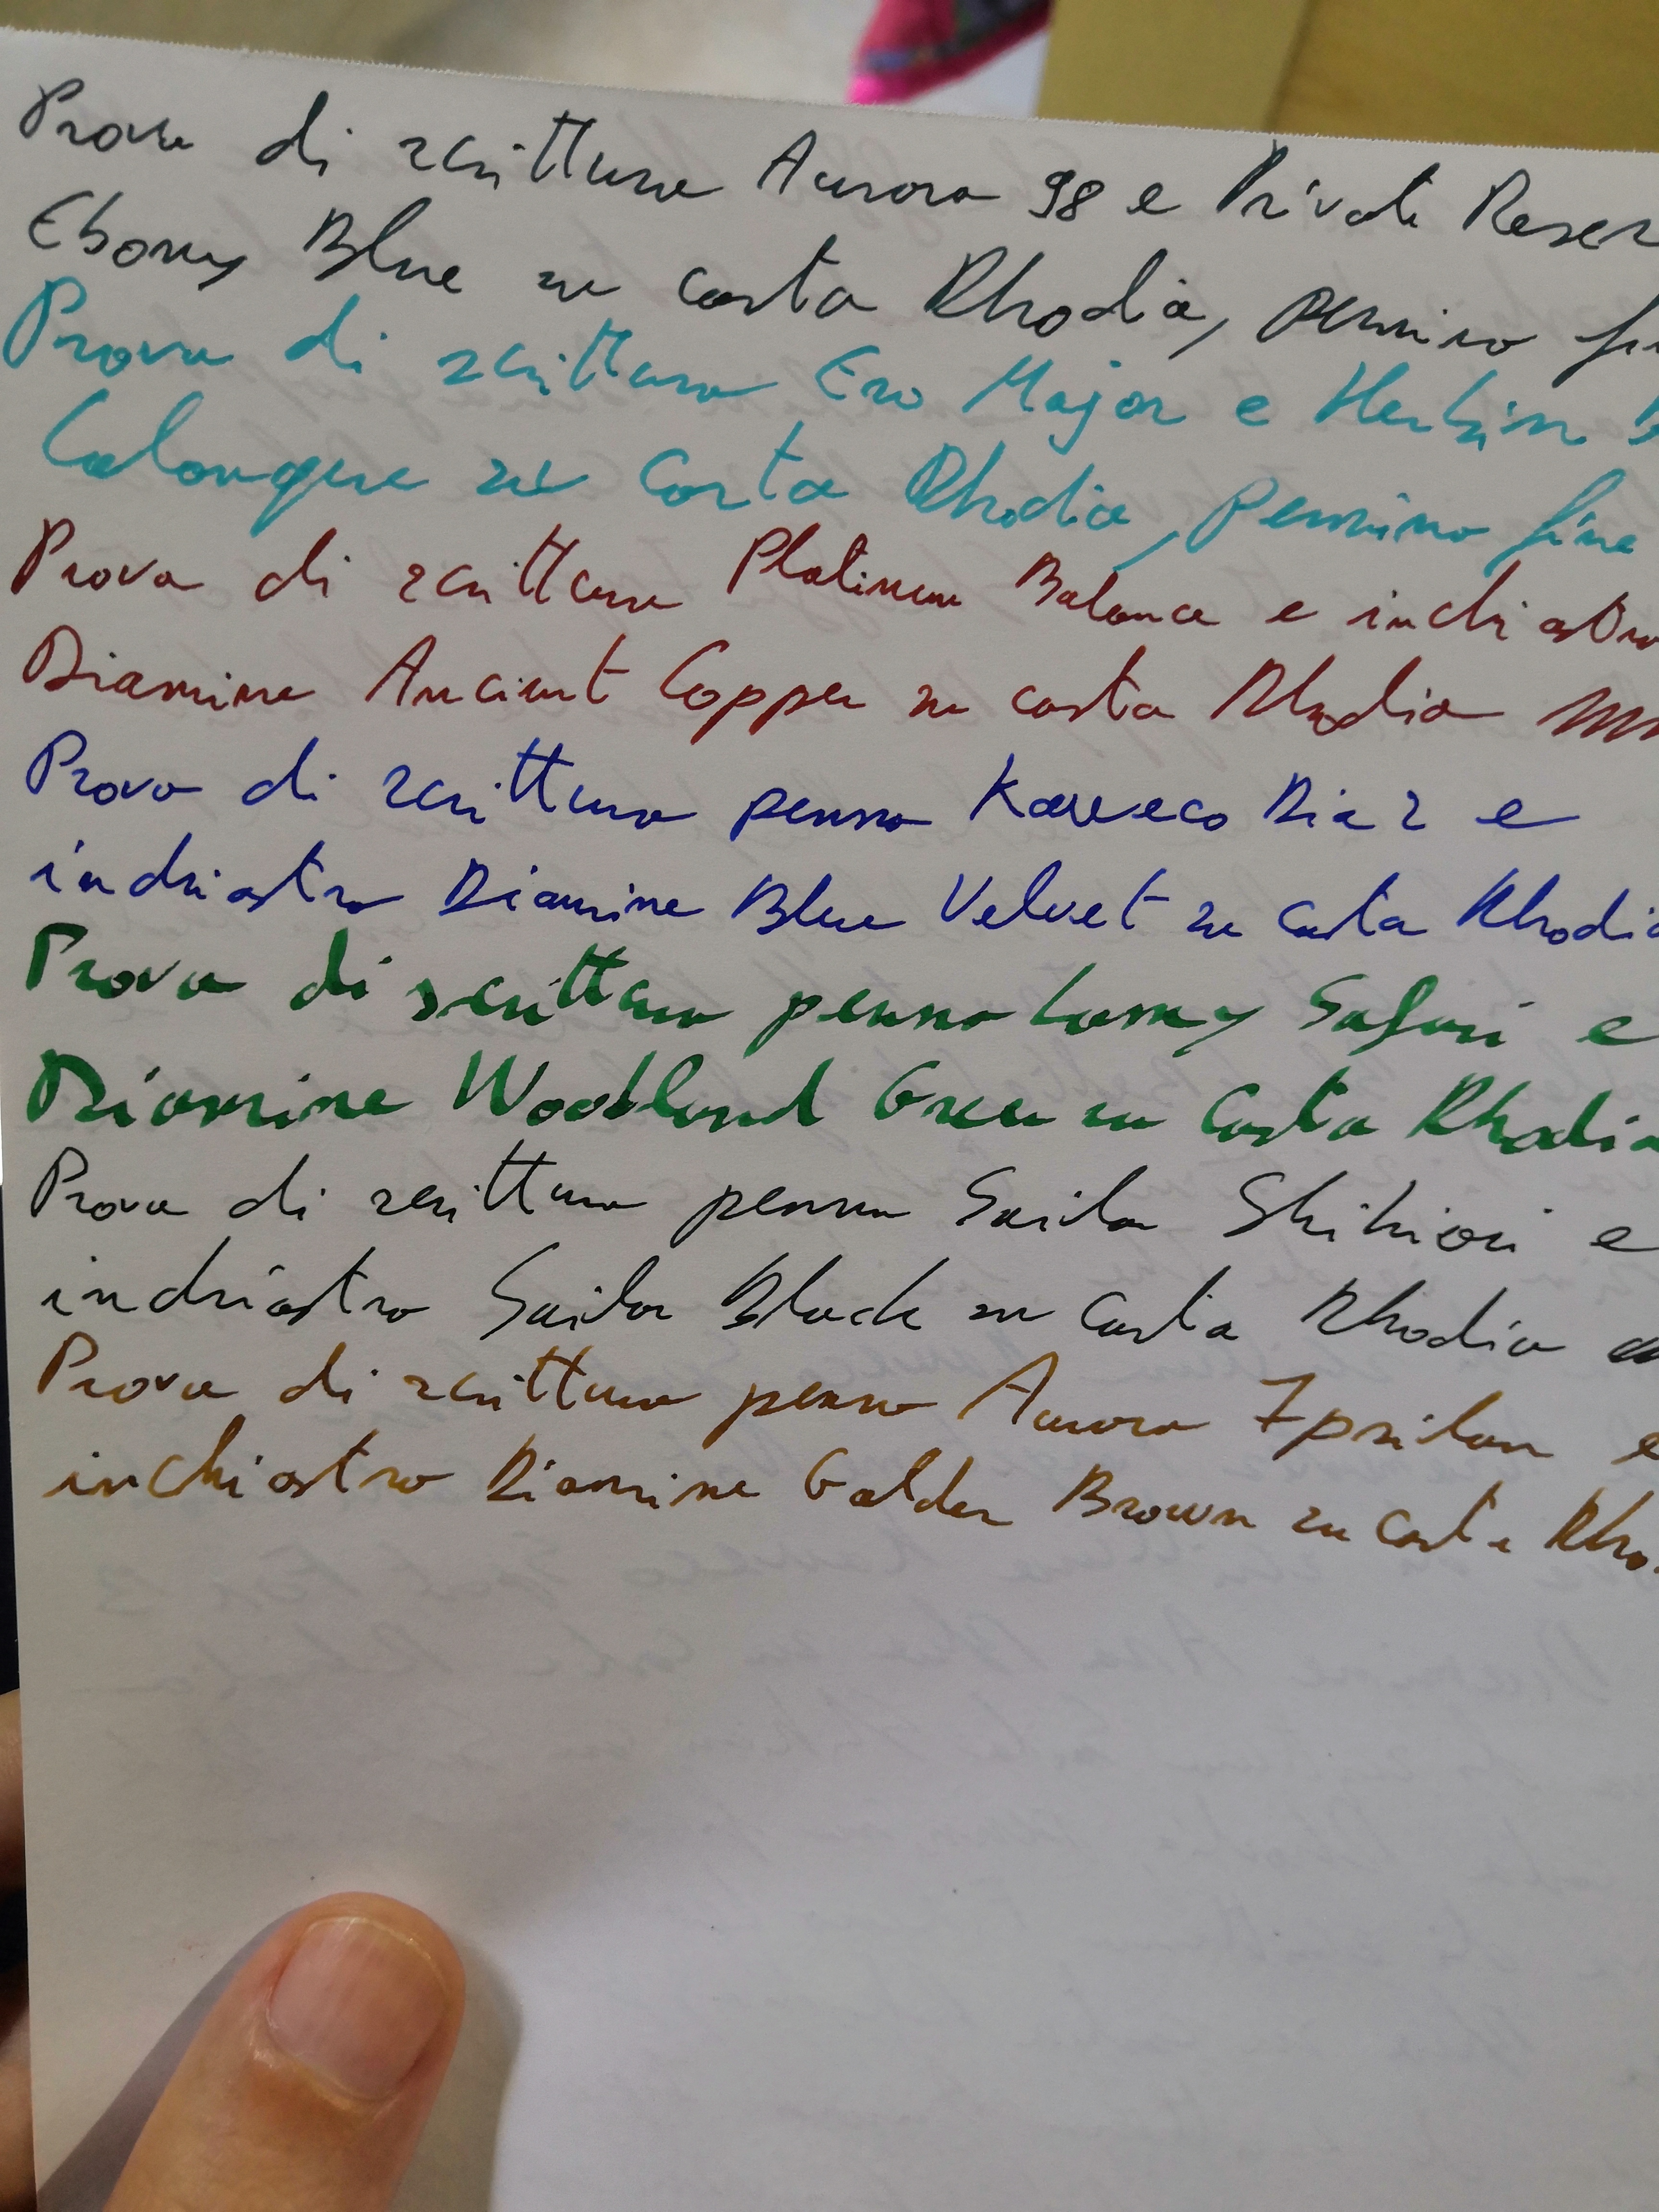 Prova di scrittura Aurora 98 e Private Reser
Ebony Blue su carta Rhodia, pennino fi
Prova di scrittura Ero Major e Herbin B
Calanque su carta Rhodia, pennino fine
Prova di scrittura Platinum Balance e inchiostro
Diamine Ancient Copper su carta Rhodia
Prova di scrittura penna Kaweco Dia 2 e
inchiostro Diamine Blue Velvet su carta Rhodia
Prova di scrittura penna Lamy Safari e
Diamine Woodland Green su carta Rhodia
Prova di scrittura penna Sailor Shikiori e
inchiostro Sailor Black su carta Rhodia
Prova di scrittura penna Aurora Ipsilon e
inchiostro Diamine Golden Brown su carta Rho